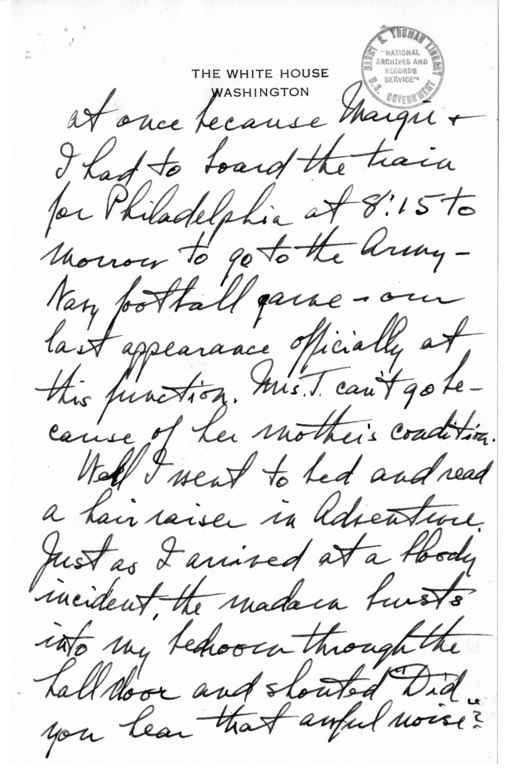 THE WHITE HOUSE
WASHINGTON
HARRY S. TRUMAN LIBRARY
"NATIONAL
ARCHIVES AND
RECORDS
SERVICE"
U.S. GOVERNMENT
at once because Margie +
I had to board the train
for Philadelphia at 8:15 to
morrow to go to the Army-
Navy football game - our
last appearance officially at
this function. Mrs. T. can't go be-
cause of her mother's condition.
Well I went to bed and read
a hair raiser in Adventure.
Just as I arrived at a bloody
incident, the madam bursts
into my bedroom through the
hall door and shouted "Did
you hear that awful noise?"